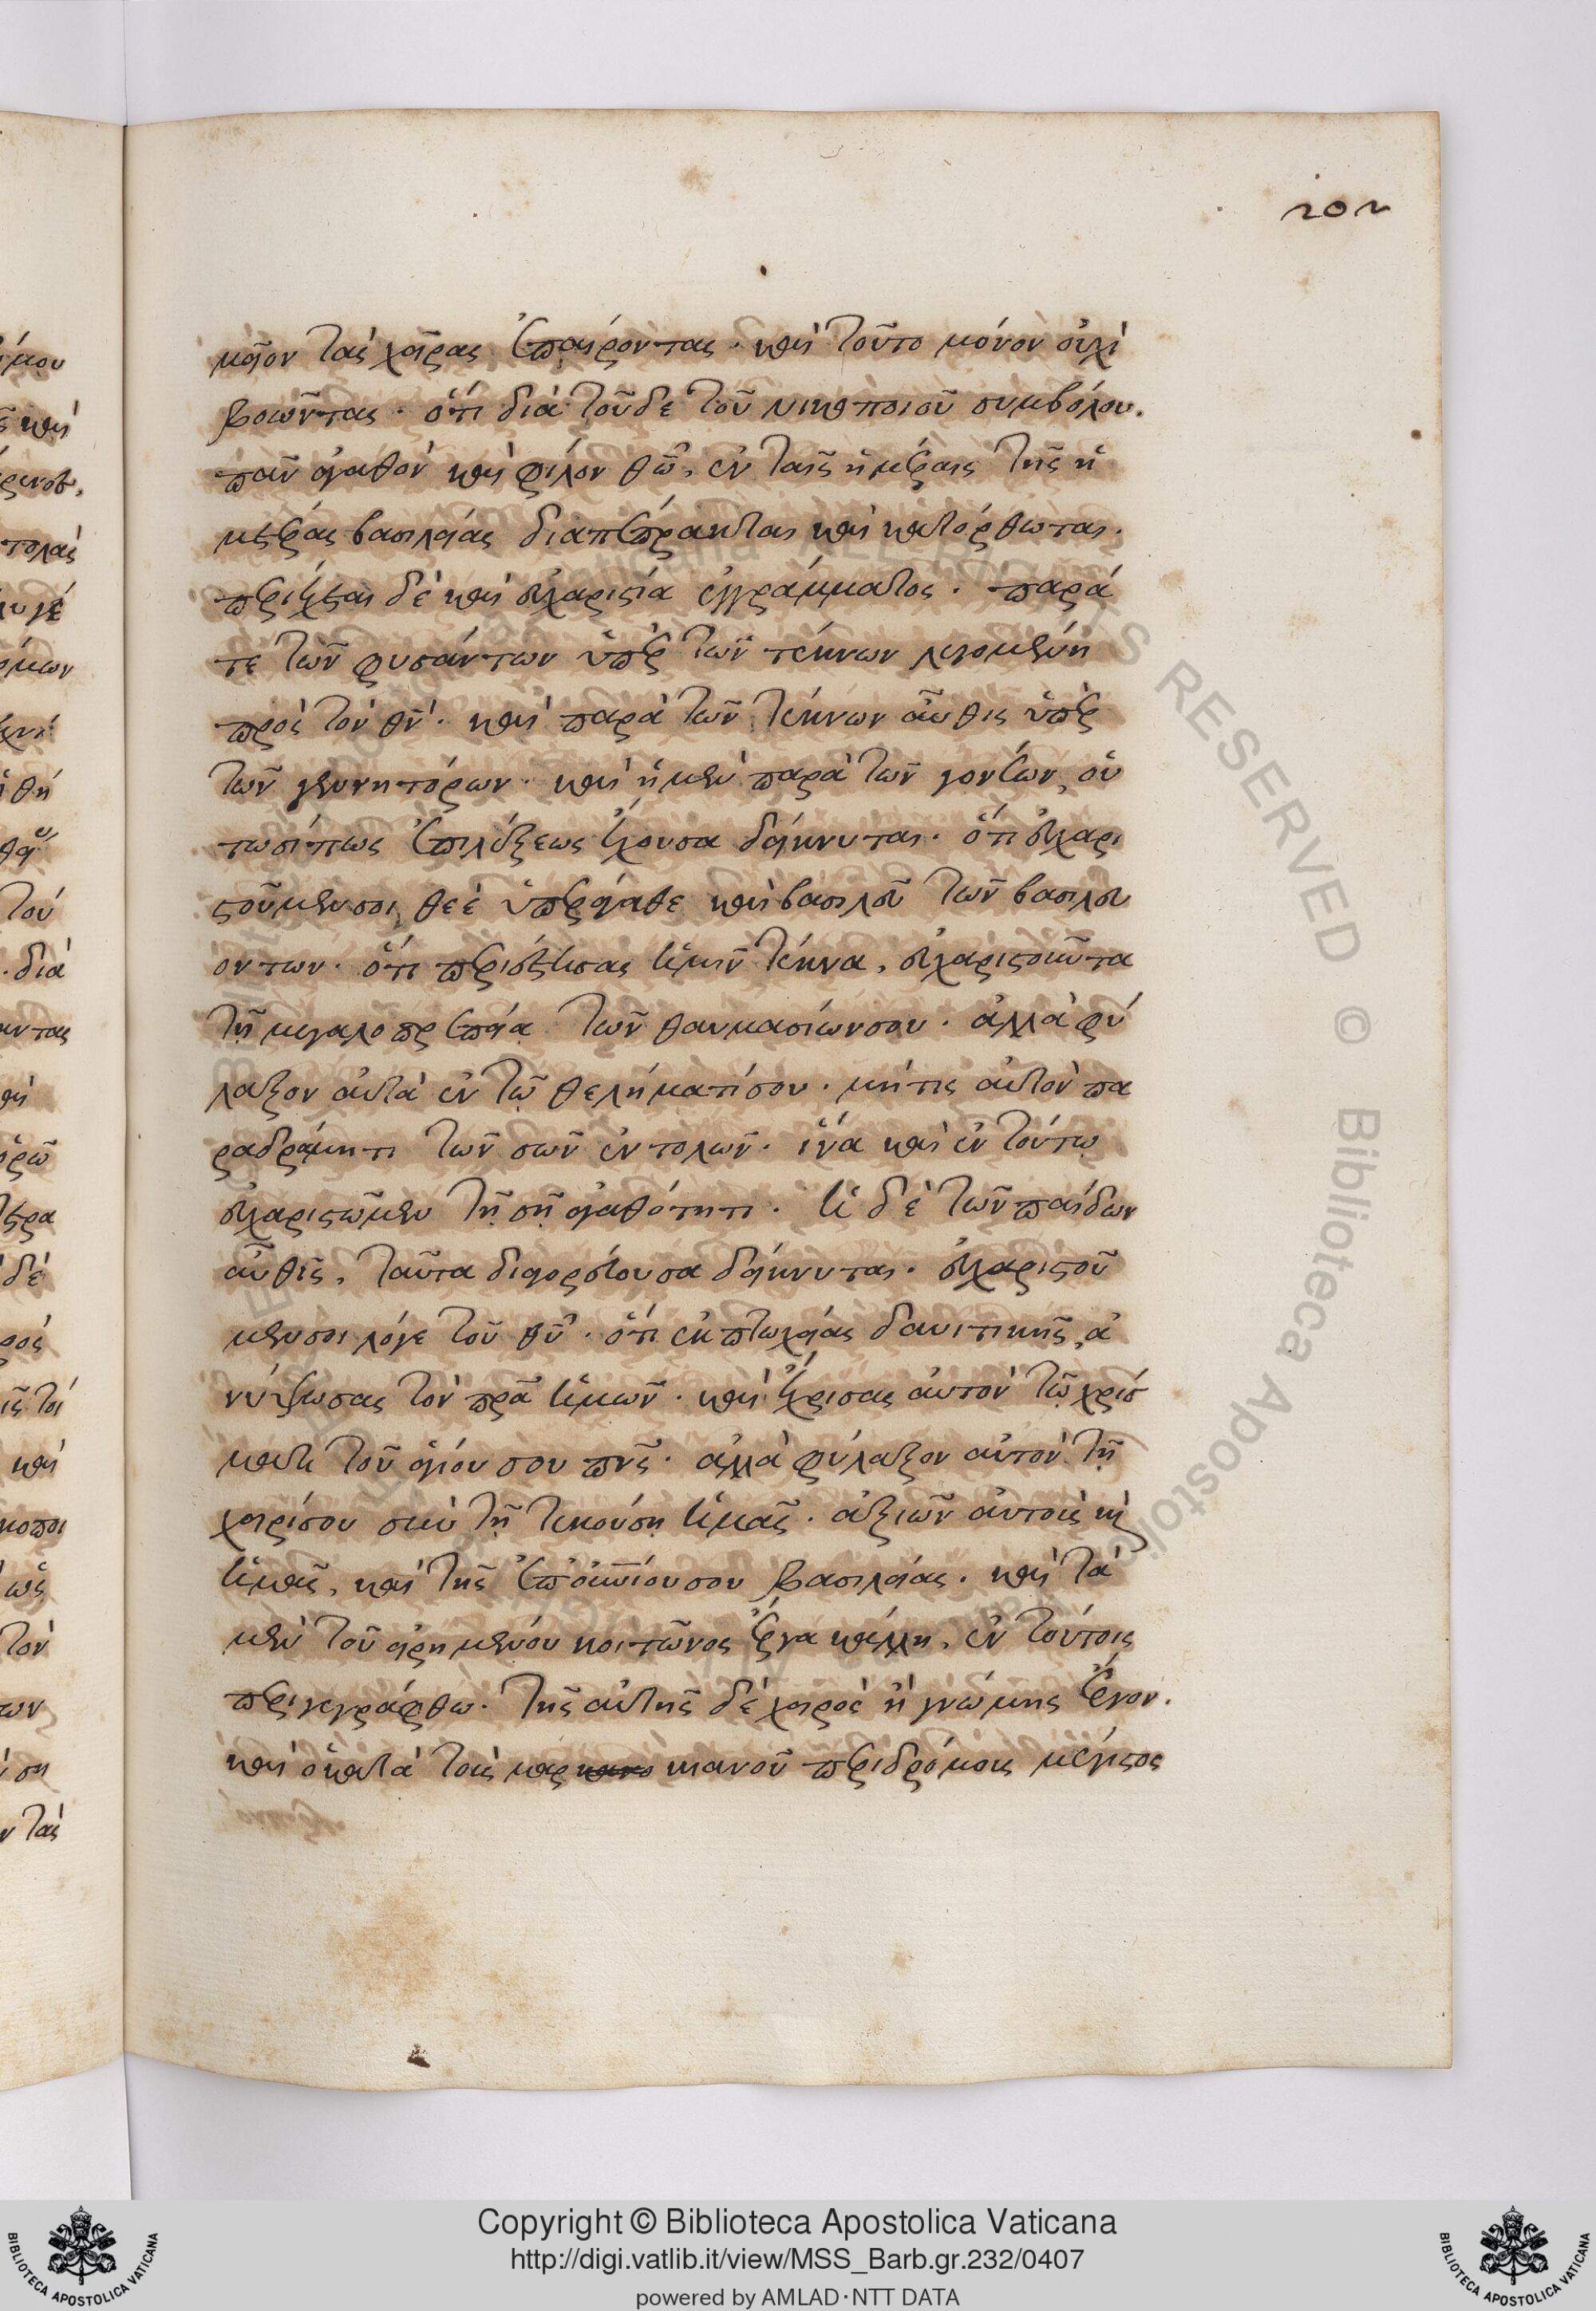 202
μεῖον τὰς χεῖρας ἐπαίροντας· καὶ τοῦτο μόνον οὐχὶ
βοῶντας· ὅτι διὰ τοῦδε τοῦ νικοποιοῦ συμβόλου.
πᾶν ἀγαθὸν καὶ φίλον θῶ, ἐν ταῖς ἡμέραις τῆς ἡ
μετέρας βασιλείας διαπέπρακται καὶ κατόρθωται.
περιέχεται δὲ καὶ εὐχαριστία ἐγγράμματος· παρά
τε τῶν φυσάντων ὑπὲρ τῶν τέκνων λεγομένη
πρὸς τὸν θν· καὶ παρὰ τῶν τέκνων αὖθις ὑπὲρ
τῶν γεννητόρων· καὶ ἡ μὲν παρὰ τῶν γονέων, οὑ
τωσίπως ἐπιλέξεως ἔχουσα δείκνυται· ὅτι εὐχαρι
στοῦμενσοι θεὲ ὑπεράγαθε καὶ βασιλεῦ τῶν βασιλευ
όντων· ὅτι περιέστησας ἡμῖν τέκνα, εὐχαριστοῦντα
τῆ μεγαλοπρεπεία τῶν θαυμασίωνσου· ἀλλὰ φύ
λαξον αὐτὰ ἐν τῶ θελήματίσου· μήτις αὐτὸν πα
ραδράμητι τῶν σῶν ἐντολῶν· ἵνα καὶ ἐν τούτω
εὐχαριστῶμεν τῆ σῆ ἀγαθότητι· ἡ δὲ τῶν παίδων
αὖθις, ταῦτα διαγορεύουσα δείκνυται· εὐχαριστοῦ
μενσοι λόγε τοῦ θῦ· ὅτι ἐκ πτωχείας δαυιτικῆς, ἀ
νύψωσας τὸν πρα ἡμῶν· καὶ ἔχρισας αὐτὸν τῶ χρίσ
ματι τοῦ ἁγίου σου πνς· ἀλλὰ φύλαξον αὐτὸν τῆ
χειρίσου σὺν τῆ τεκούση ἡμᾶς· ἀξιῶν αὐτοὺς κὶ
ἡμᾶς, καὶ τῆς ἐπουνίουσου βασιλείας· καὶ τὰ
μὲν τοῦ εἰρημένου κοιτῶνος ἔργα κάλλη, ἐν τούτοις
περιγεγράφθω· τῆς αὐτῆς δὲ χειρὸς ἢ γνώμης ἔργον.
καὶ ὁ κατὰ τοὺς μαρκιανοῦ περιδρόμους μέγιστος